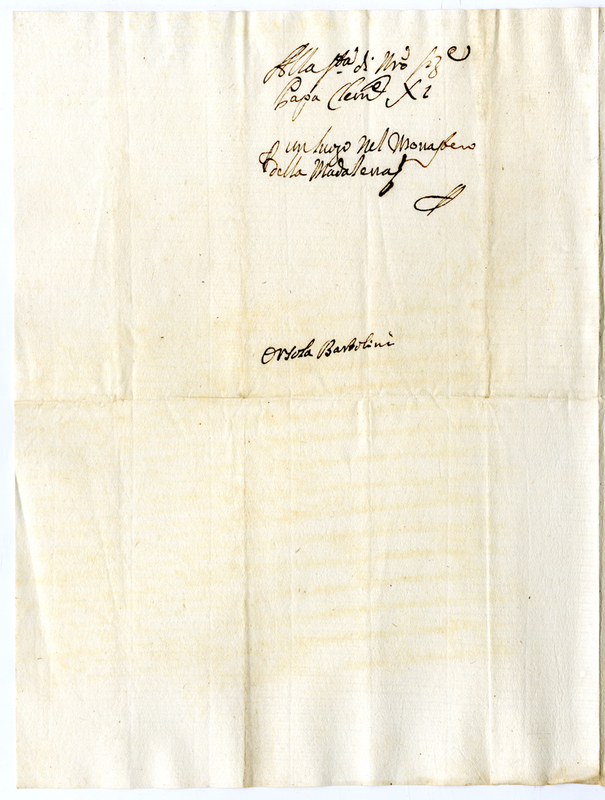 Alla Stà di Nrõ Sige
Papa Cleme XI
un luogo nel Monastero
della Madalena
Orsola Bartolini